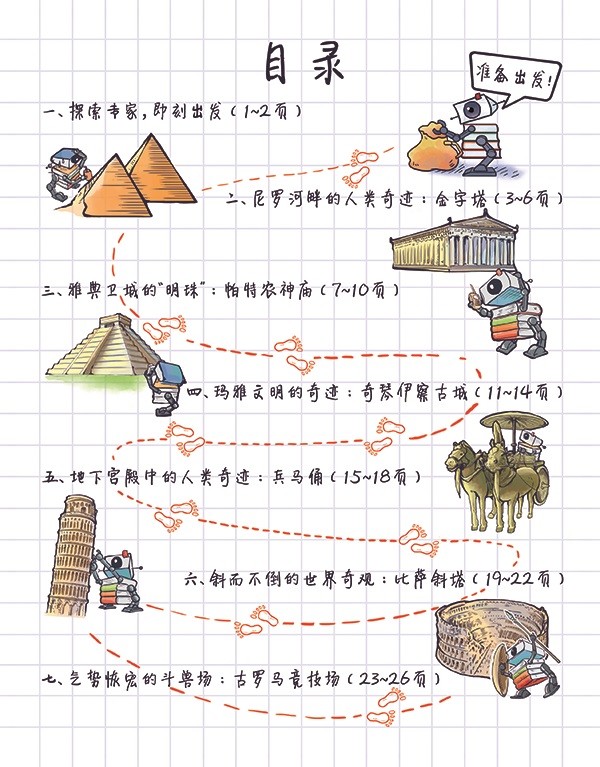 目录
准备出发！
一、探索专家，即刻出发（1~2页）
二、尼罗河畔的人类奇迹：金字塔（3~6页）
三、雅典卫城的“明珠”：帕特农神庙（7~10页）
四、玛雅文明的奇迹：奇琴伊察古城（11~14页）
五、地下宫殿中的人类奇迹：兵马俑（15~18页）
六、斜而不倒的世界奇观：比萨斜塔（19~22页）
七、气势恢宏的斗兽场：古罗马竞技场（23~26页）